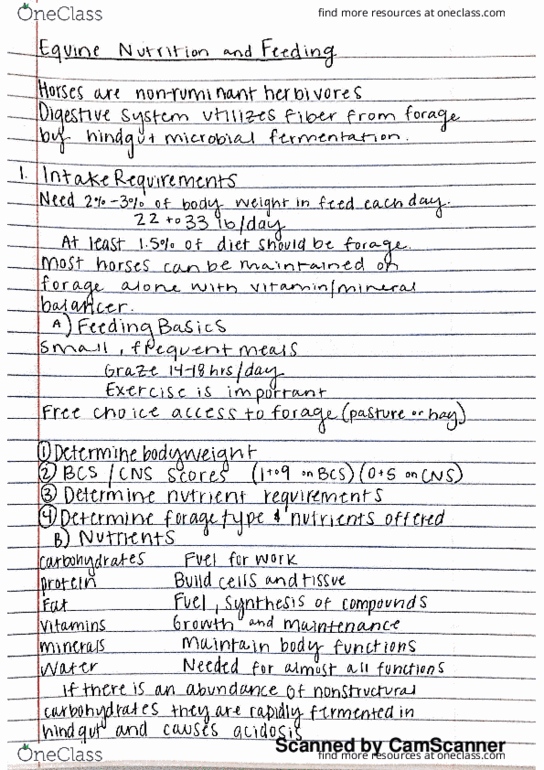 OneClass
find more resources at oneclass.com
Equine Nutrition and Feeding
Horses are non-ruminant herbivores
Digestive system utilizes fiber from forage
by hindgut microbial fermentation.
1. Intake Requirements
Need 2%-3% of body weight in feed each day.
22 to 33 lb/day
At least 1.5% of diet should be forage.
Most horses can be maintained on
forage alone with vitamin/mineral
balancer.
A) Feeding Basics
Small, frequent meals
Graze 14-18 hrs/day
Exercise is important
Free choice access to forage (pasture or hay)
① Determine bodyweight
② BCS / CNS scores (1 to 9 on BCS) (0 to 5 on CNS)
③ Determine nutrient requirements
④ Determine forage type & nutrients offered
B) Nutrients
carbohydrates Fuel for work
protein Build cells and tissue
Fat Fuel, synthesis of compounds
Vitamins Growth and maintenance
minerals Maintain body functions
Water Needed for almost all functions
If there is an abundance of nonstructural
carbohydrates they are rapidly fermented in
hindgut and causes acidosis
Scanned by CamScanner
OneClass
find more resources at oneclass.com